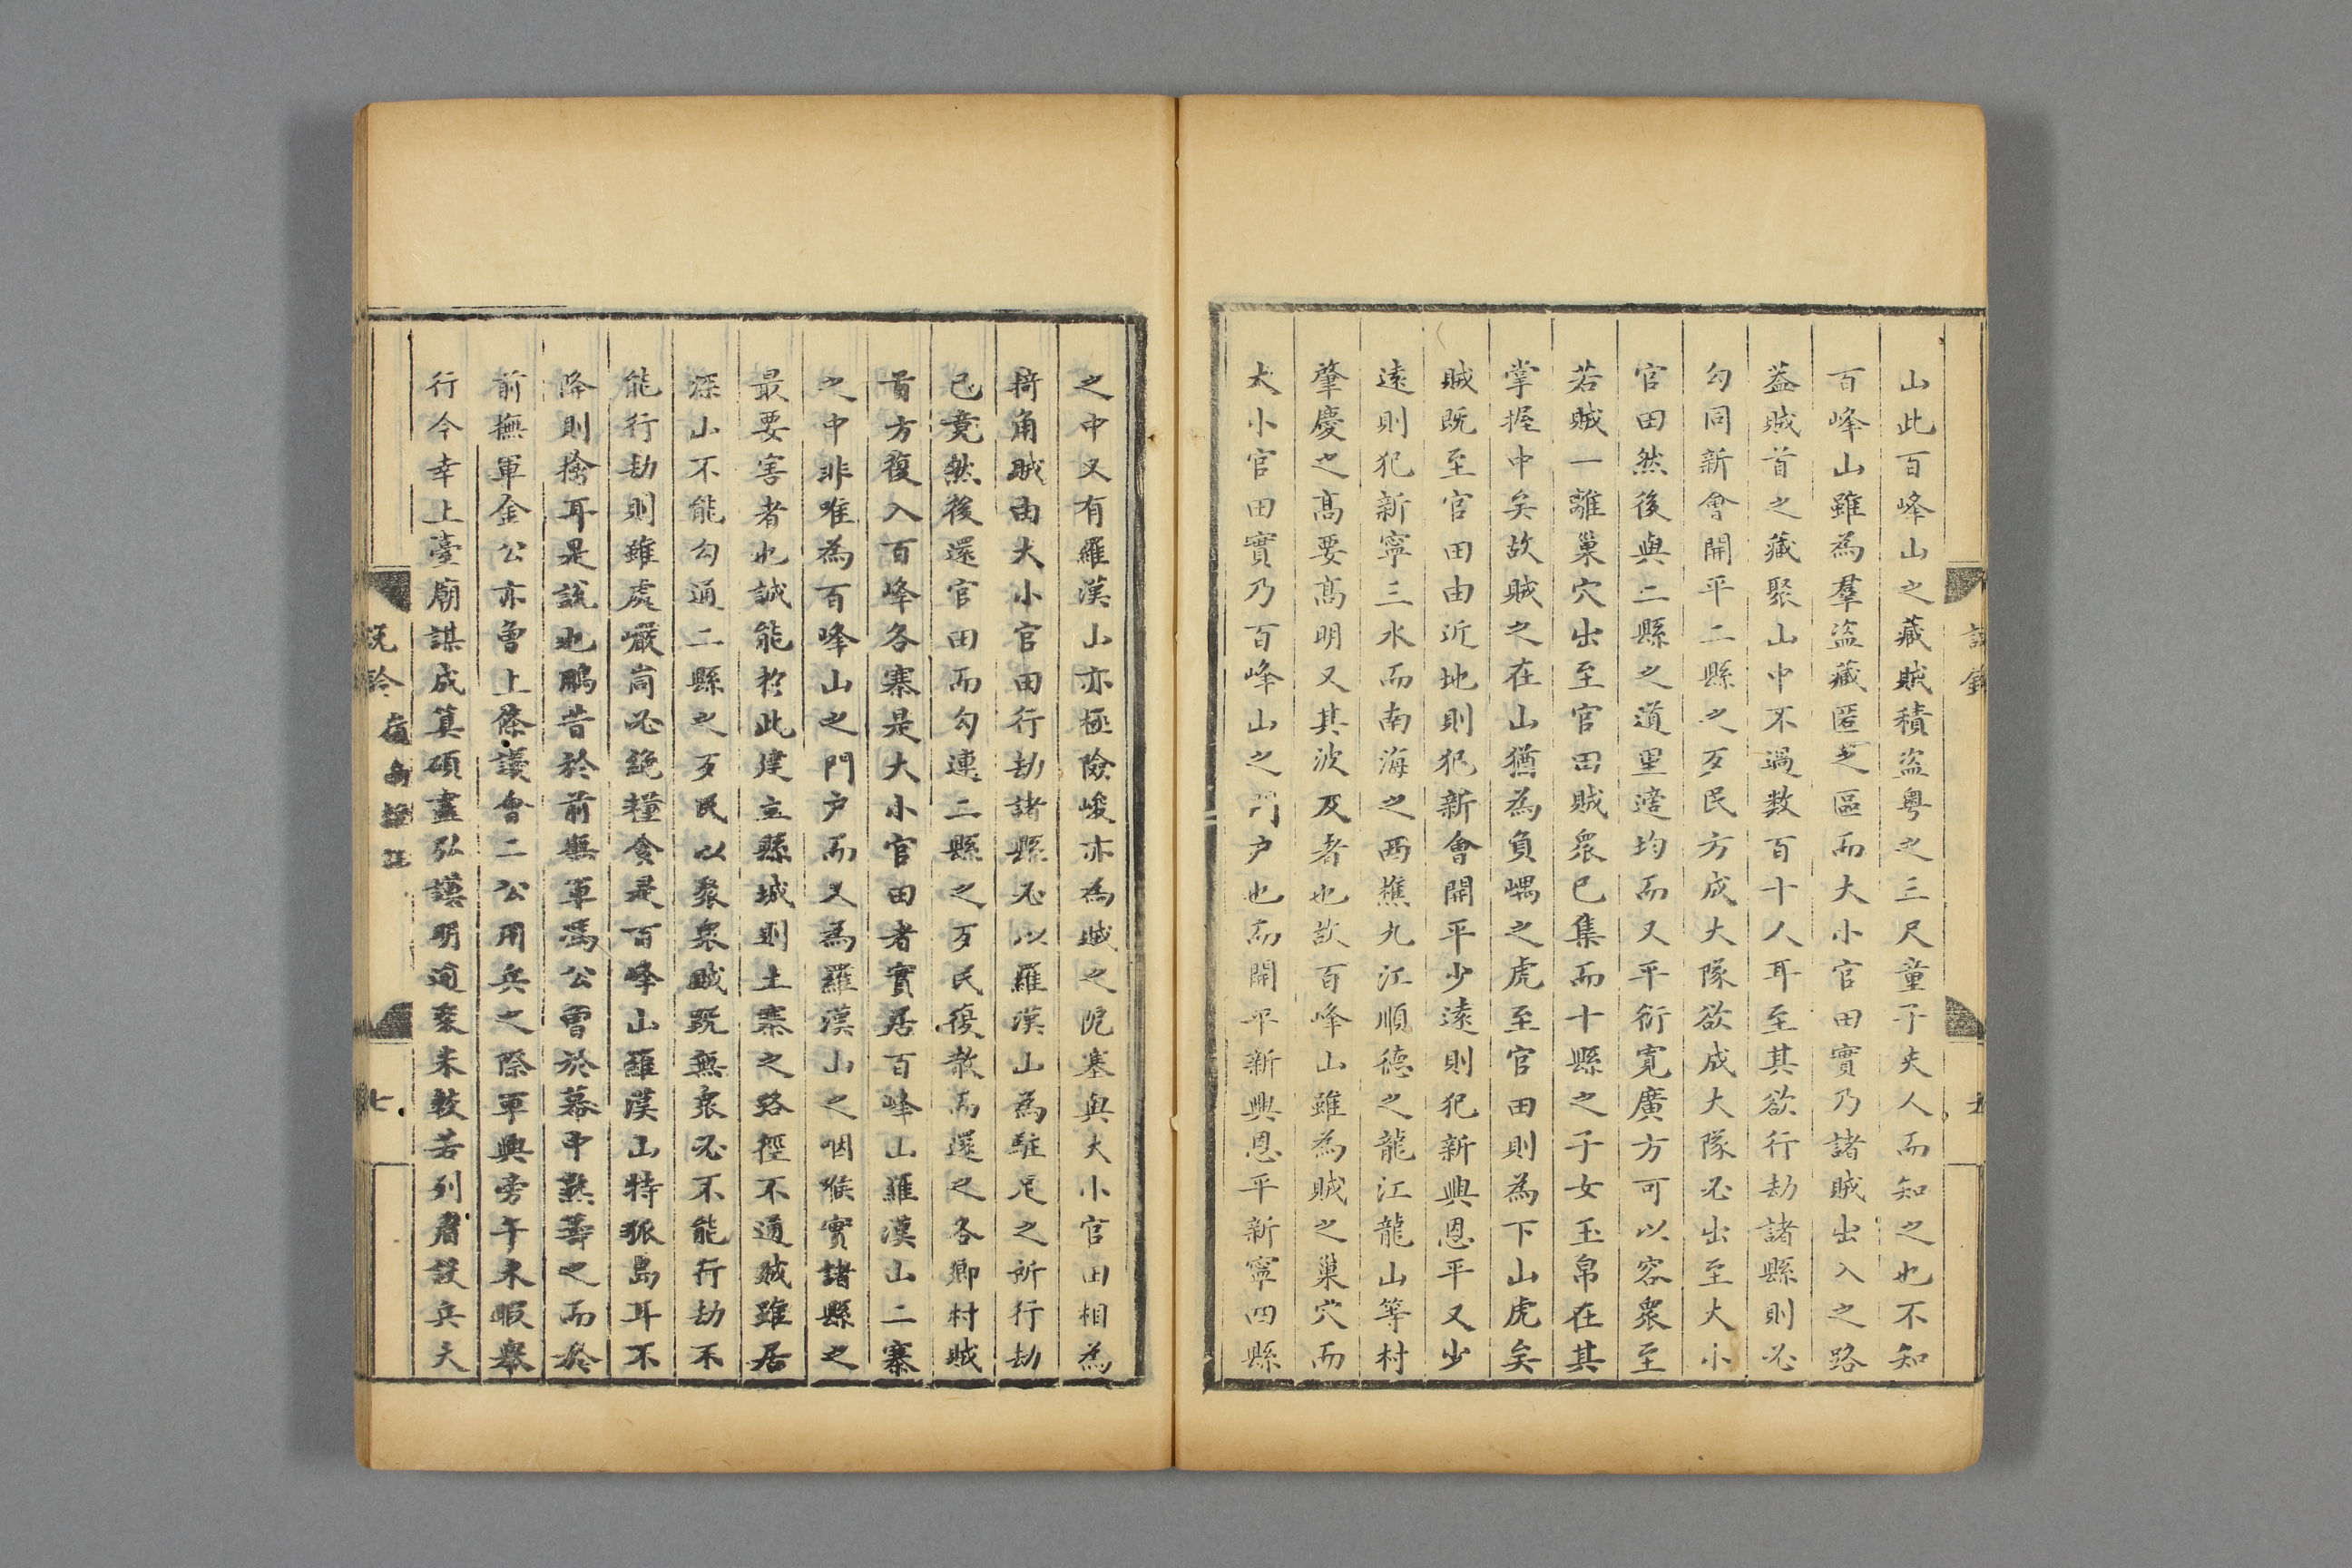 山此百峰山之藏賊積盜粤之三尺童子夫人而知之也不知
百峰山雖為羣盜藏匿之區而大小官田實乃諸賊出入之路
葢賊首之藏聚山中不過数百十人耳至其欲行劫諸縣則必
勾同新會開平二縣之歹民方成大隊欲成大隊必出至大小
官田然後與二縣之道里適均而又平衍寛廣方可以容衆至
若賊一離巢穴出至官田賊衆已集而十縣之子女玉帛在其
掌握中矣故賊之在山猶為負嵎之虎至官田則為下山虎矣
賊既至官田由近地則犯新會開平少遠則犯新興恩平又少
遠則犯新寧三水而南海之西樵九江順德之龍江龍山等村
肇慶之髙要髙明又其波及者也故百峰山雖為賊之巢穴而
大小官田實乃百峰山之門户也而開平新興恩平新寧四縣
之中又有羅漢山亦極險峻亦為賊之阨塞與大小官田相為
掎角賊由大小官田行劫諸縣必以羅漢山為駐足之所行劫
已竟然後還官田而勾連二縣之歹民復散而還之各鄉村賊
首方復入百峰各寨是大小官田者實居百峰山羅漢山二寨
之中非唯為百峰山之門户而又為羅漢山之咽喉實諸縣之
最要害者也誠能於此建立縣城則土寨之路徑不通賊雖居
深山不能勾通二縣之歹民以聚衆賊既無衆必不能行劫不
能行劫則雖處巖崗必絶糧食是百峰山羅漢山特狐島耳不
降則擒耳是說也鵬昔於前撫軍馮公曾於幕中熟籌之而於
前撫軍金公亦曾上條議會二公用兵之際軍興旁午未暇舉
行今幸上臺廟謀成算碩畫弘謨明通桀未敉若列眉設兵夫
七